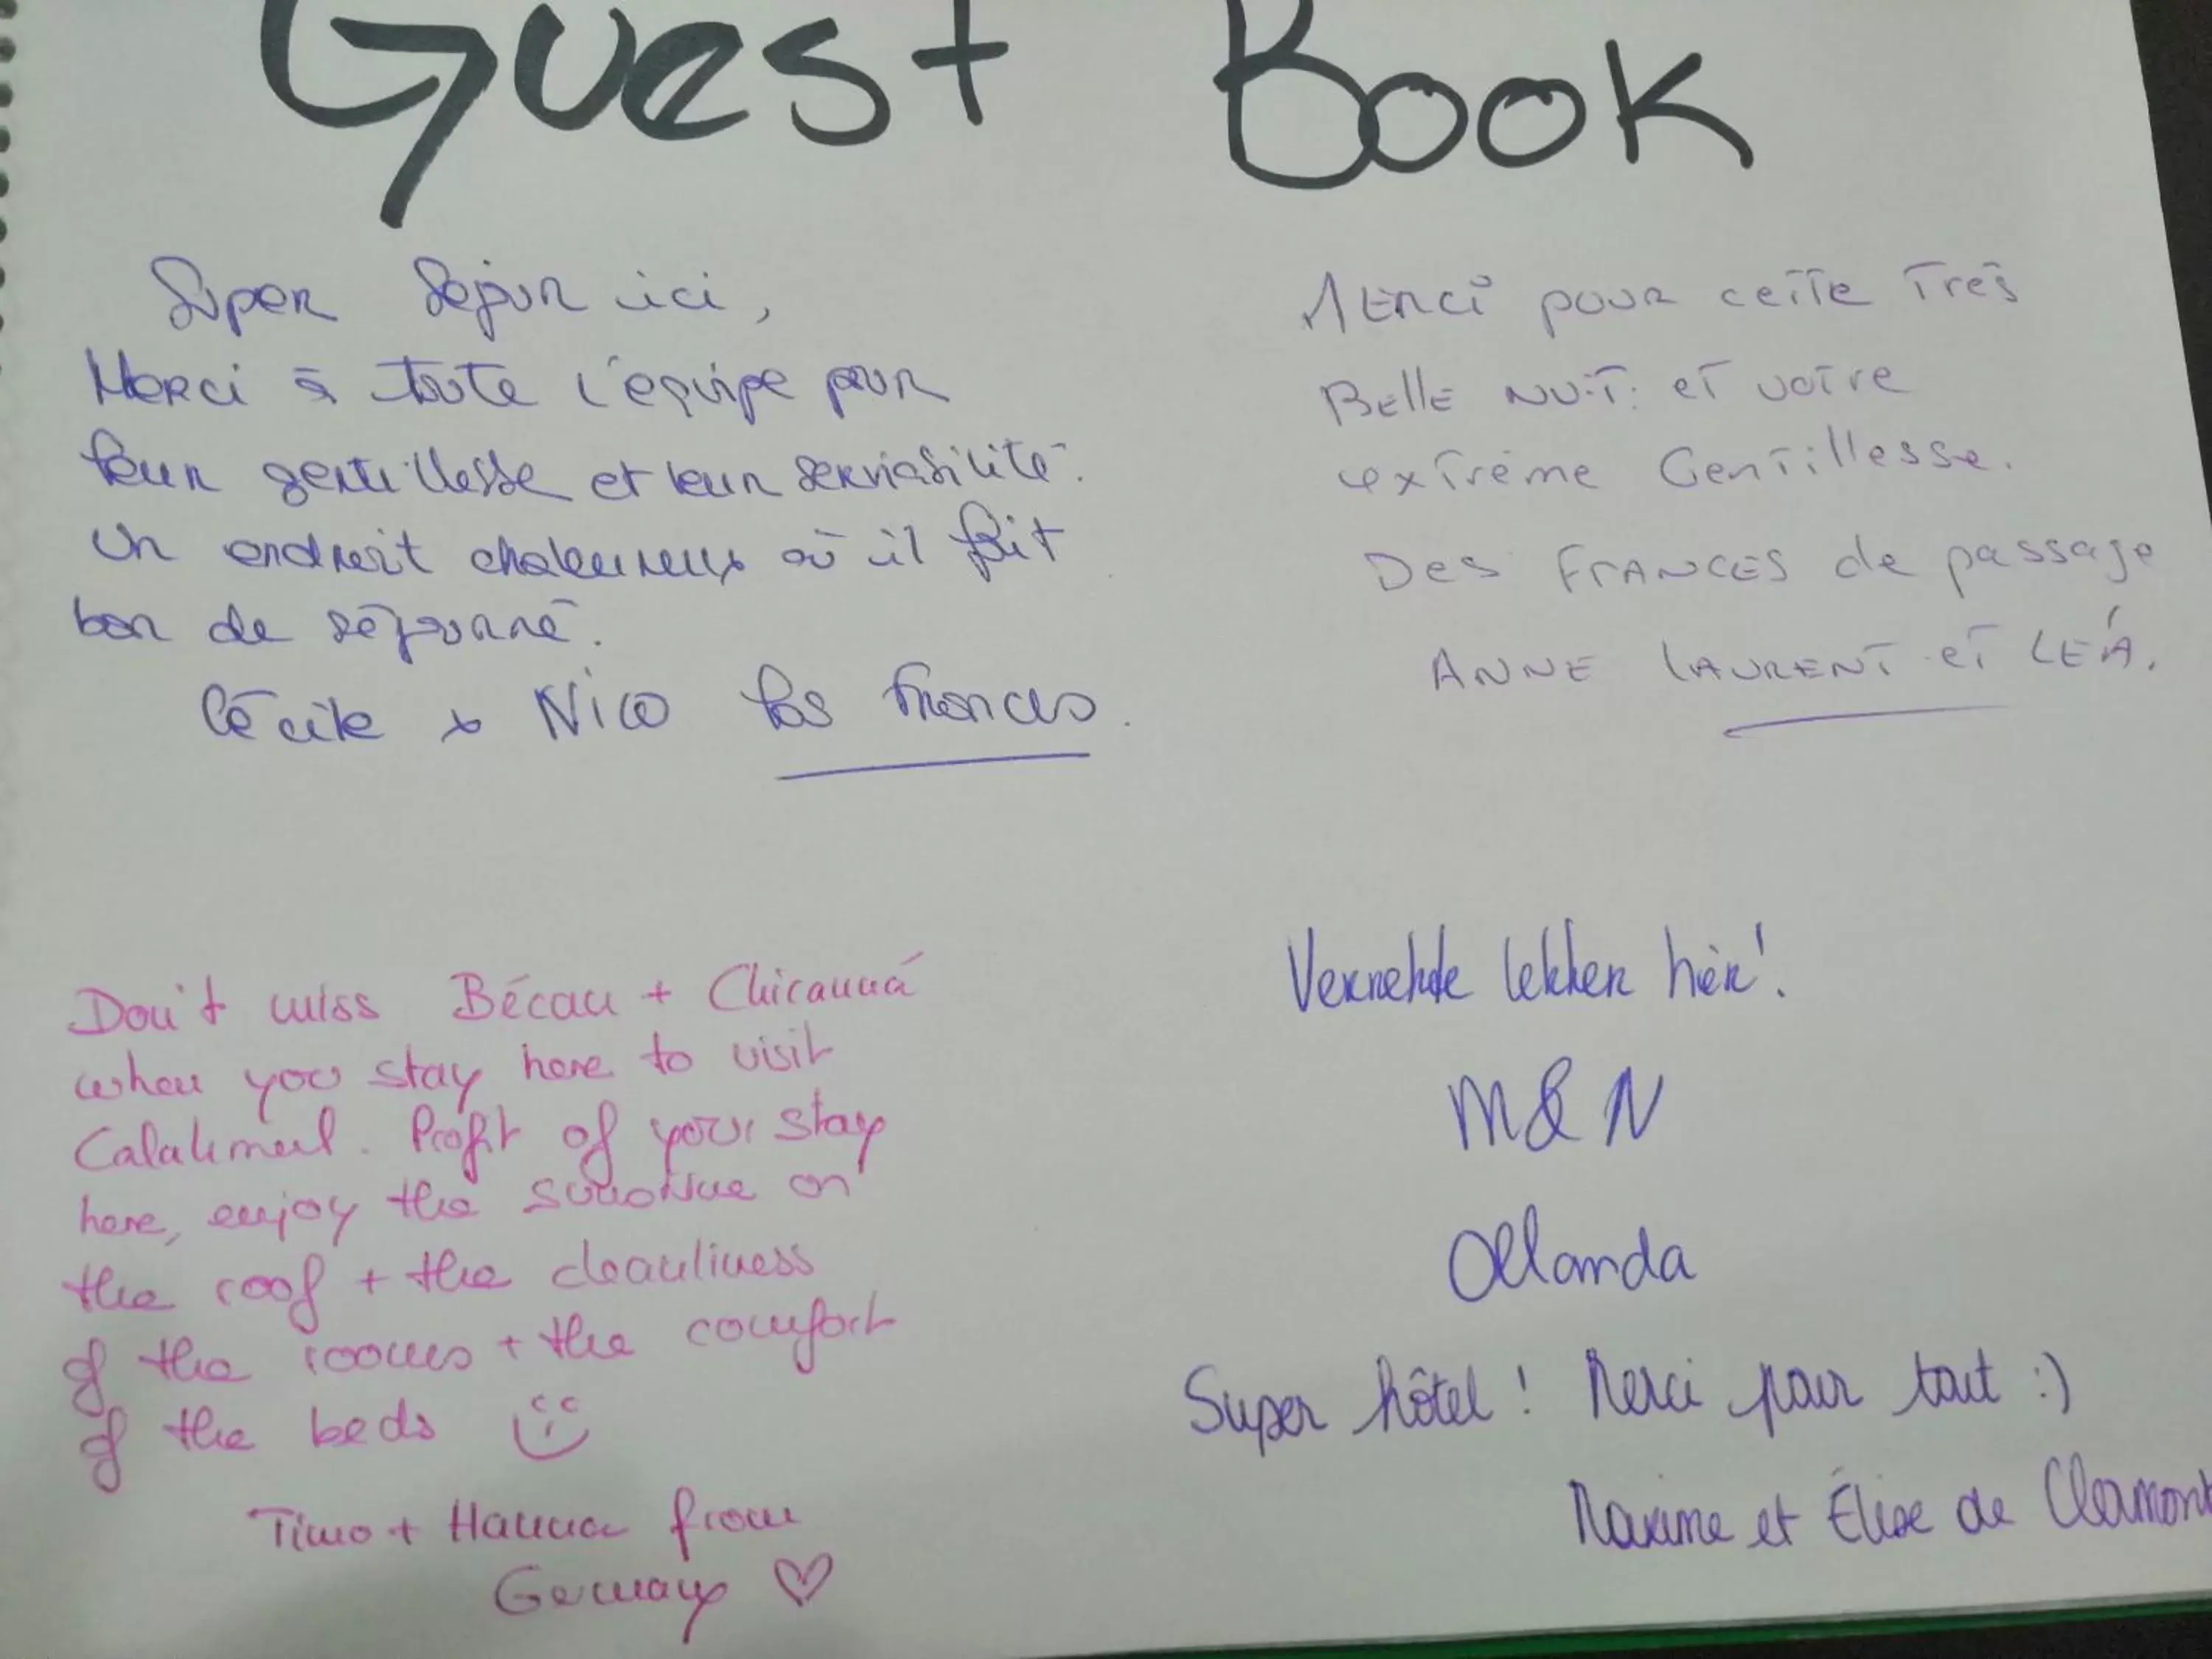 Guest Book
Super Séjour ici,
Merci à toute l'équipe pour
leur gentillesse et leur serviabilité.
Un endroit chaleureux où il fait
bon de séjourné.
Cécile & Nico Los Frances.
MERCI pour cette Très
Belle NUiT. et votre
extrême Gentillesse.
Des FRANCES de passage
ANNE LAURENT et LÉA.
Don't miss Bécan + Chicanná
when you stay here to visit
Calakmul. Profit of your stay
here, enjoy the sunshine on
the roof + the cleanliness
of the rooms + the comfort
of the beds
Timo + Hanna from
Germany ♡
lekker hier!
M & N
Ollanda
Super hôtel ! Merci pour tout :)
Maxime et Élise de Clermont